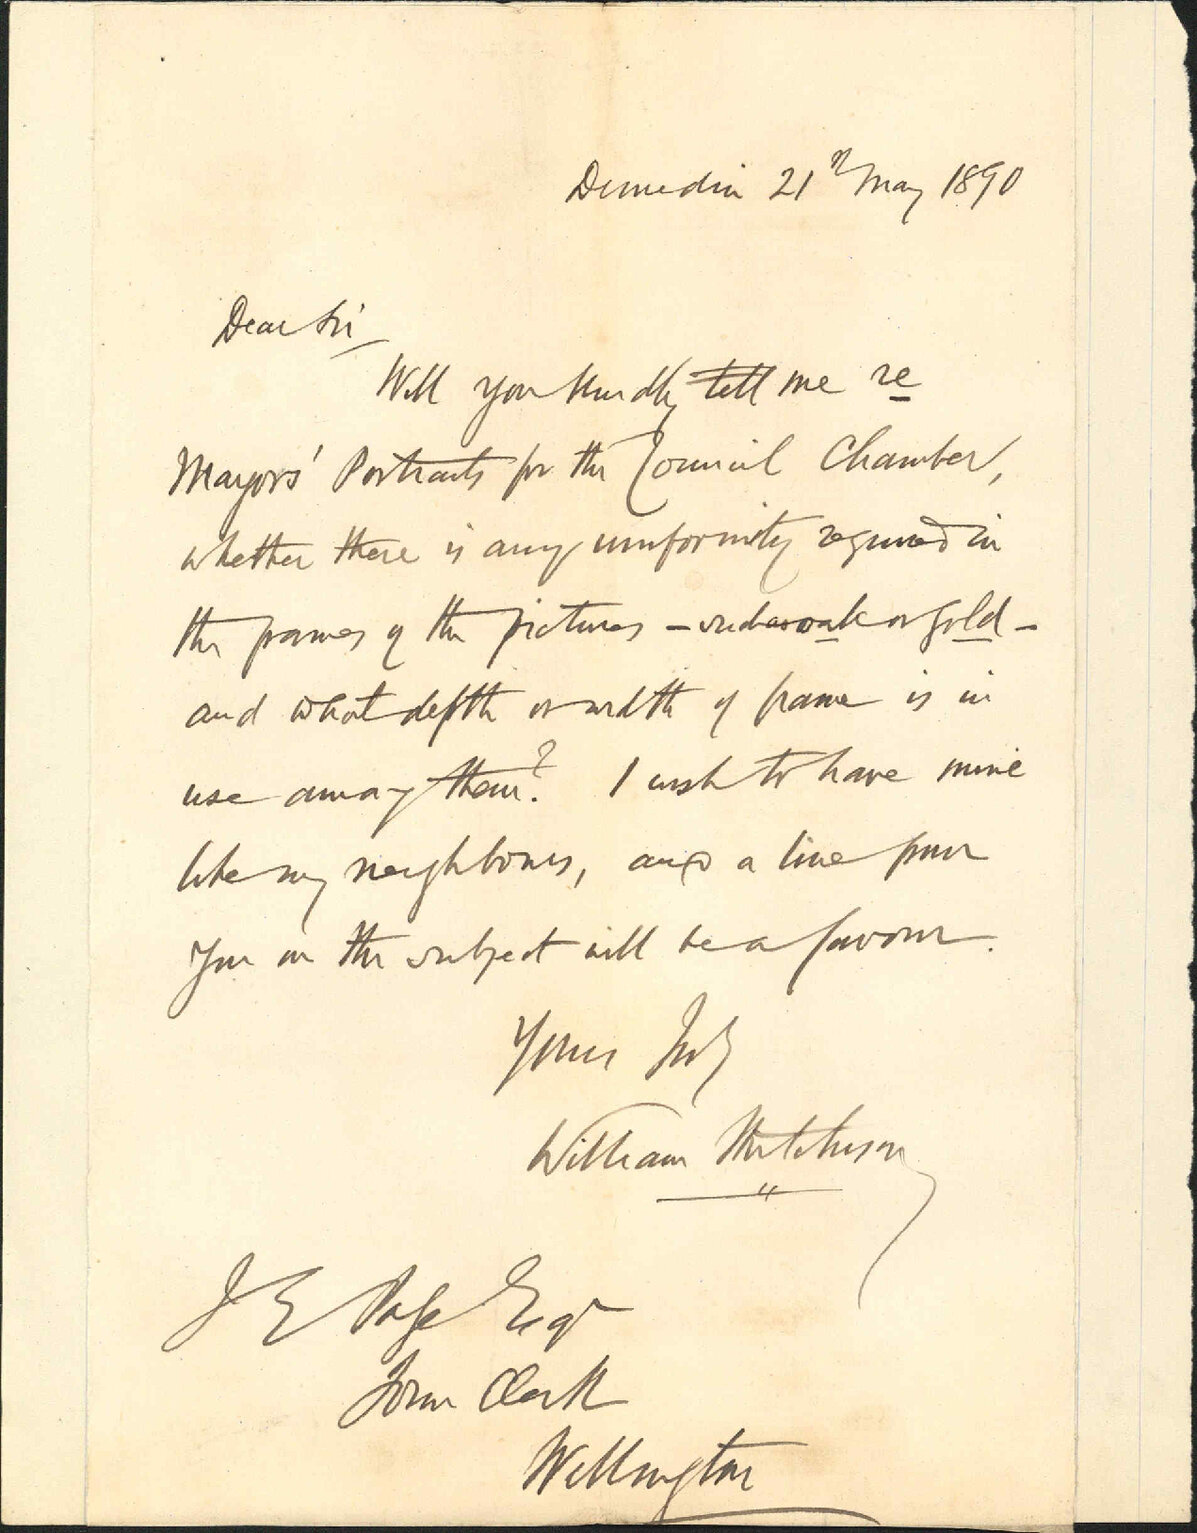 Dunedin 21st May 1890
Dear Sir
Will you kindly tell me re
Mayors' Portraits for the Council Chamber,
whether there is any uniformity required in
the frames of the pictures – oak or gold –
and what depth or width of frame is in
use among them? I wish to have mine
like my neighbours, and a line from
you on the subject will be a favour.
Yours truly
William Hutchison
J E Page Esqr
Town Clerk
Wellington